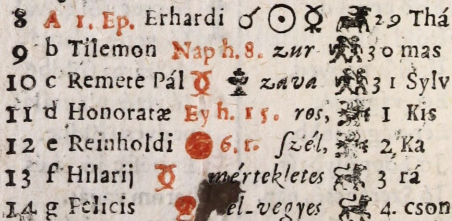 8 A 1. Ep. Erhardi ☌ ☉ ☿ 29 Thá
9 b Tilemon Nap h. 8. zur 30 mas
10 c Remete Pál ☿ zava 31 Sylv
11 d Honoratæ Ey h. 15. ros, 1 Kis
12 e Reinholdi 6. r. ſzél, 2 Ka
13 f Hilarij ☿ mértekletes 3 rá
14 g Felicis el-vegyes 4. cson